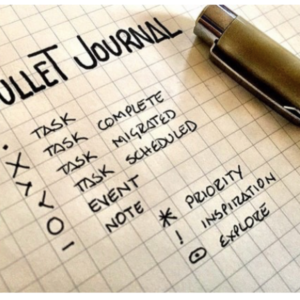 ULLET JOURNAL
• TASK
X TASK COMPLETE
> TASK MIGRATED
< TASK SCHEDULED
O EVENT
– NOTE
* PRIORITY
! INSPIRATION
⊙ EXPLORE